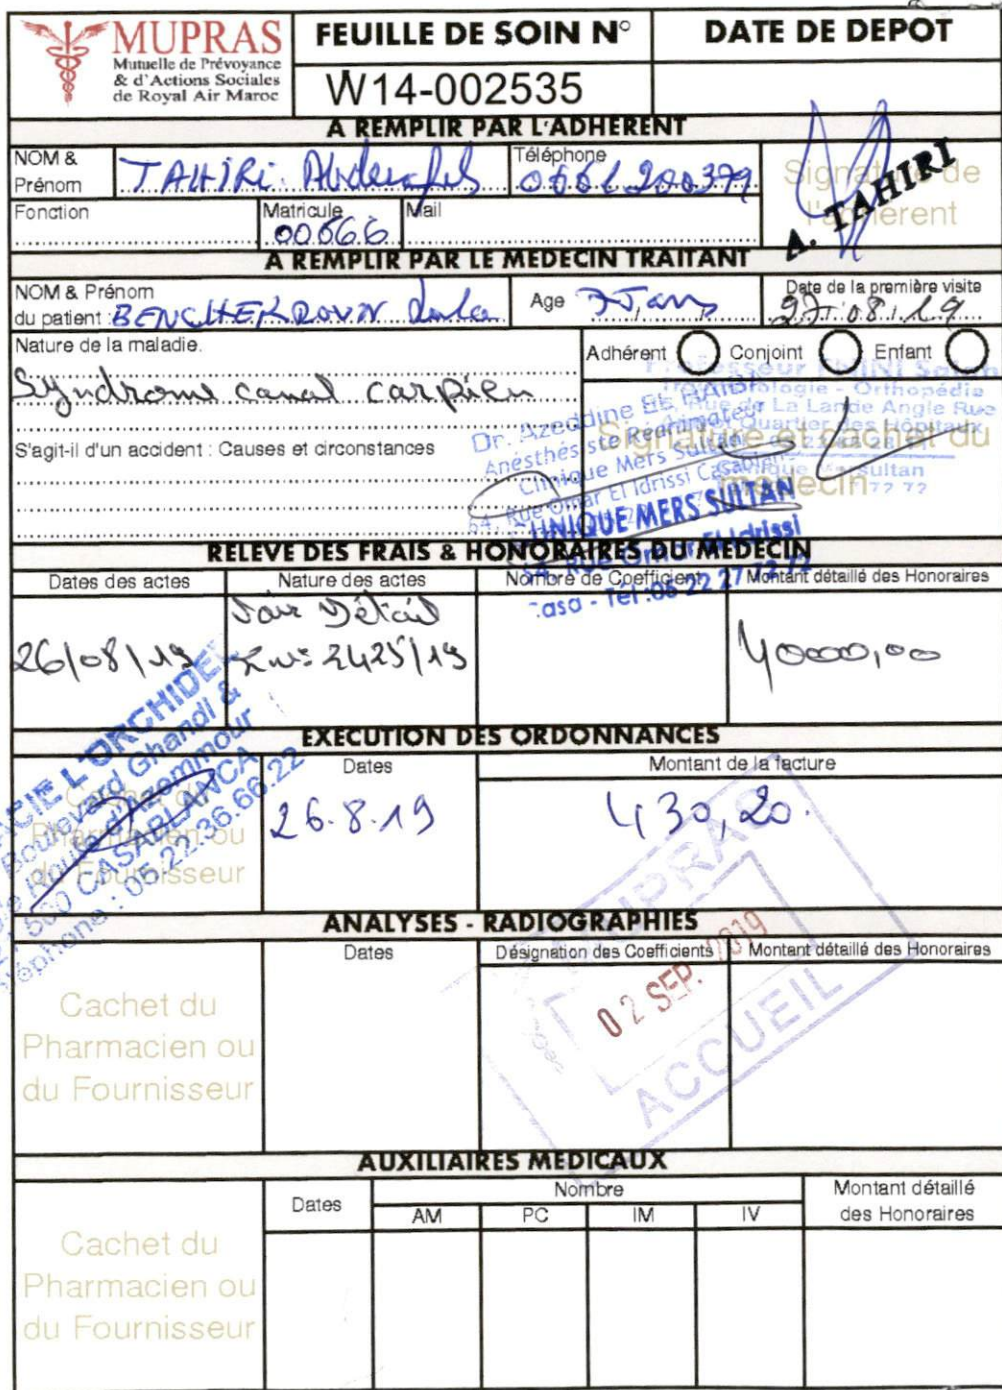 MUPRAS
Mutuelle de Prévoyance
& d'Actions Sociales
de Royal Air Maroc
FEUILLE DE SOIN N°
W14-002535
DATE DE DEPOT
A REMPLIR PAR L'ADHERENT
NOM &
Prénom
TAHIRI
Téléphone
0661200379
Signature de
l'adhérent
A. TAHIRI
Fonction
Matricule
00666
Mail
A REMPLIR PAR LE MEDECIN TRAITANT
NOM & Prénom
du patient : BENCHEKROUN
Age
75 ans
Date de la première visite
27.08.19
Nature de la maladie.
Syndrome canal carpien
Adhérent
Conjoint
Enfant
S'agit-il d'un accident : Causes et circonstances
Signature et cachet du
médecin
Orthopédie
La Lande Angle Rue
Quartier des Hôpitaux
Dr. Azeddine
Anesthésiste Réanimateur
Clinique Mers Sultan
Rue Omar El Idrissi
CLINIQUE MERS SULTAN
54, Rue Omar El Idrissi
Casa - Tél : 05 22 27 72 72
RELEVE DES FRAIS & HONORAIRES DU MEDECIN
Dates des actes
Nature des actes
Nombre de Coefficient
Montant détaillé des Honoraires
26/08/19
Détail
2425/19
4000,00
EXECUTION DES ORDONNANCES
Cachet du
Pharmacien ou
du Fournisseur
Dates
Montant de la facture
L'ORCHIDEE
Boulevard Ghandi &
d'Azemmour
CASABLANCA
05.22.36.66.22
26.8.19
430,20.
ANALYSES - RADIOGRAPHIES
Cachet du
Pharmacien ou
du Fournisseur
Dates
Désignation des Coefficients
Montant détaillé des Honoraires
MUPRAS
02 SEP. 2019
ACCUEIL
AUXILIAIRES MEDICAUX
Cachet du
Pharmacien ou
du Fournisseur
Dates
Nombre
AM
PC
IM
IV
Montant détaillé
des Honoraires